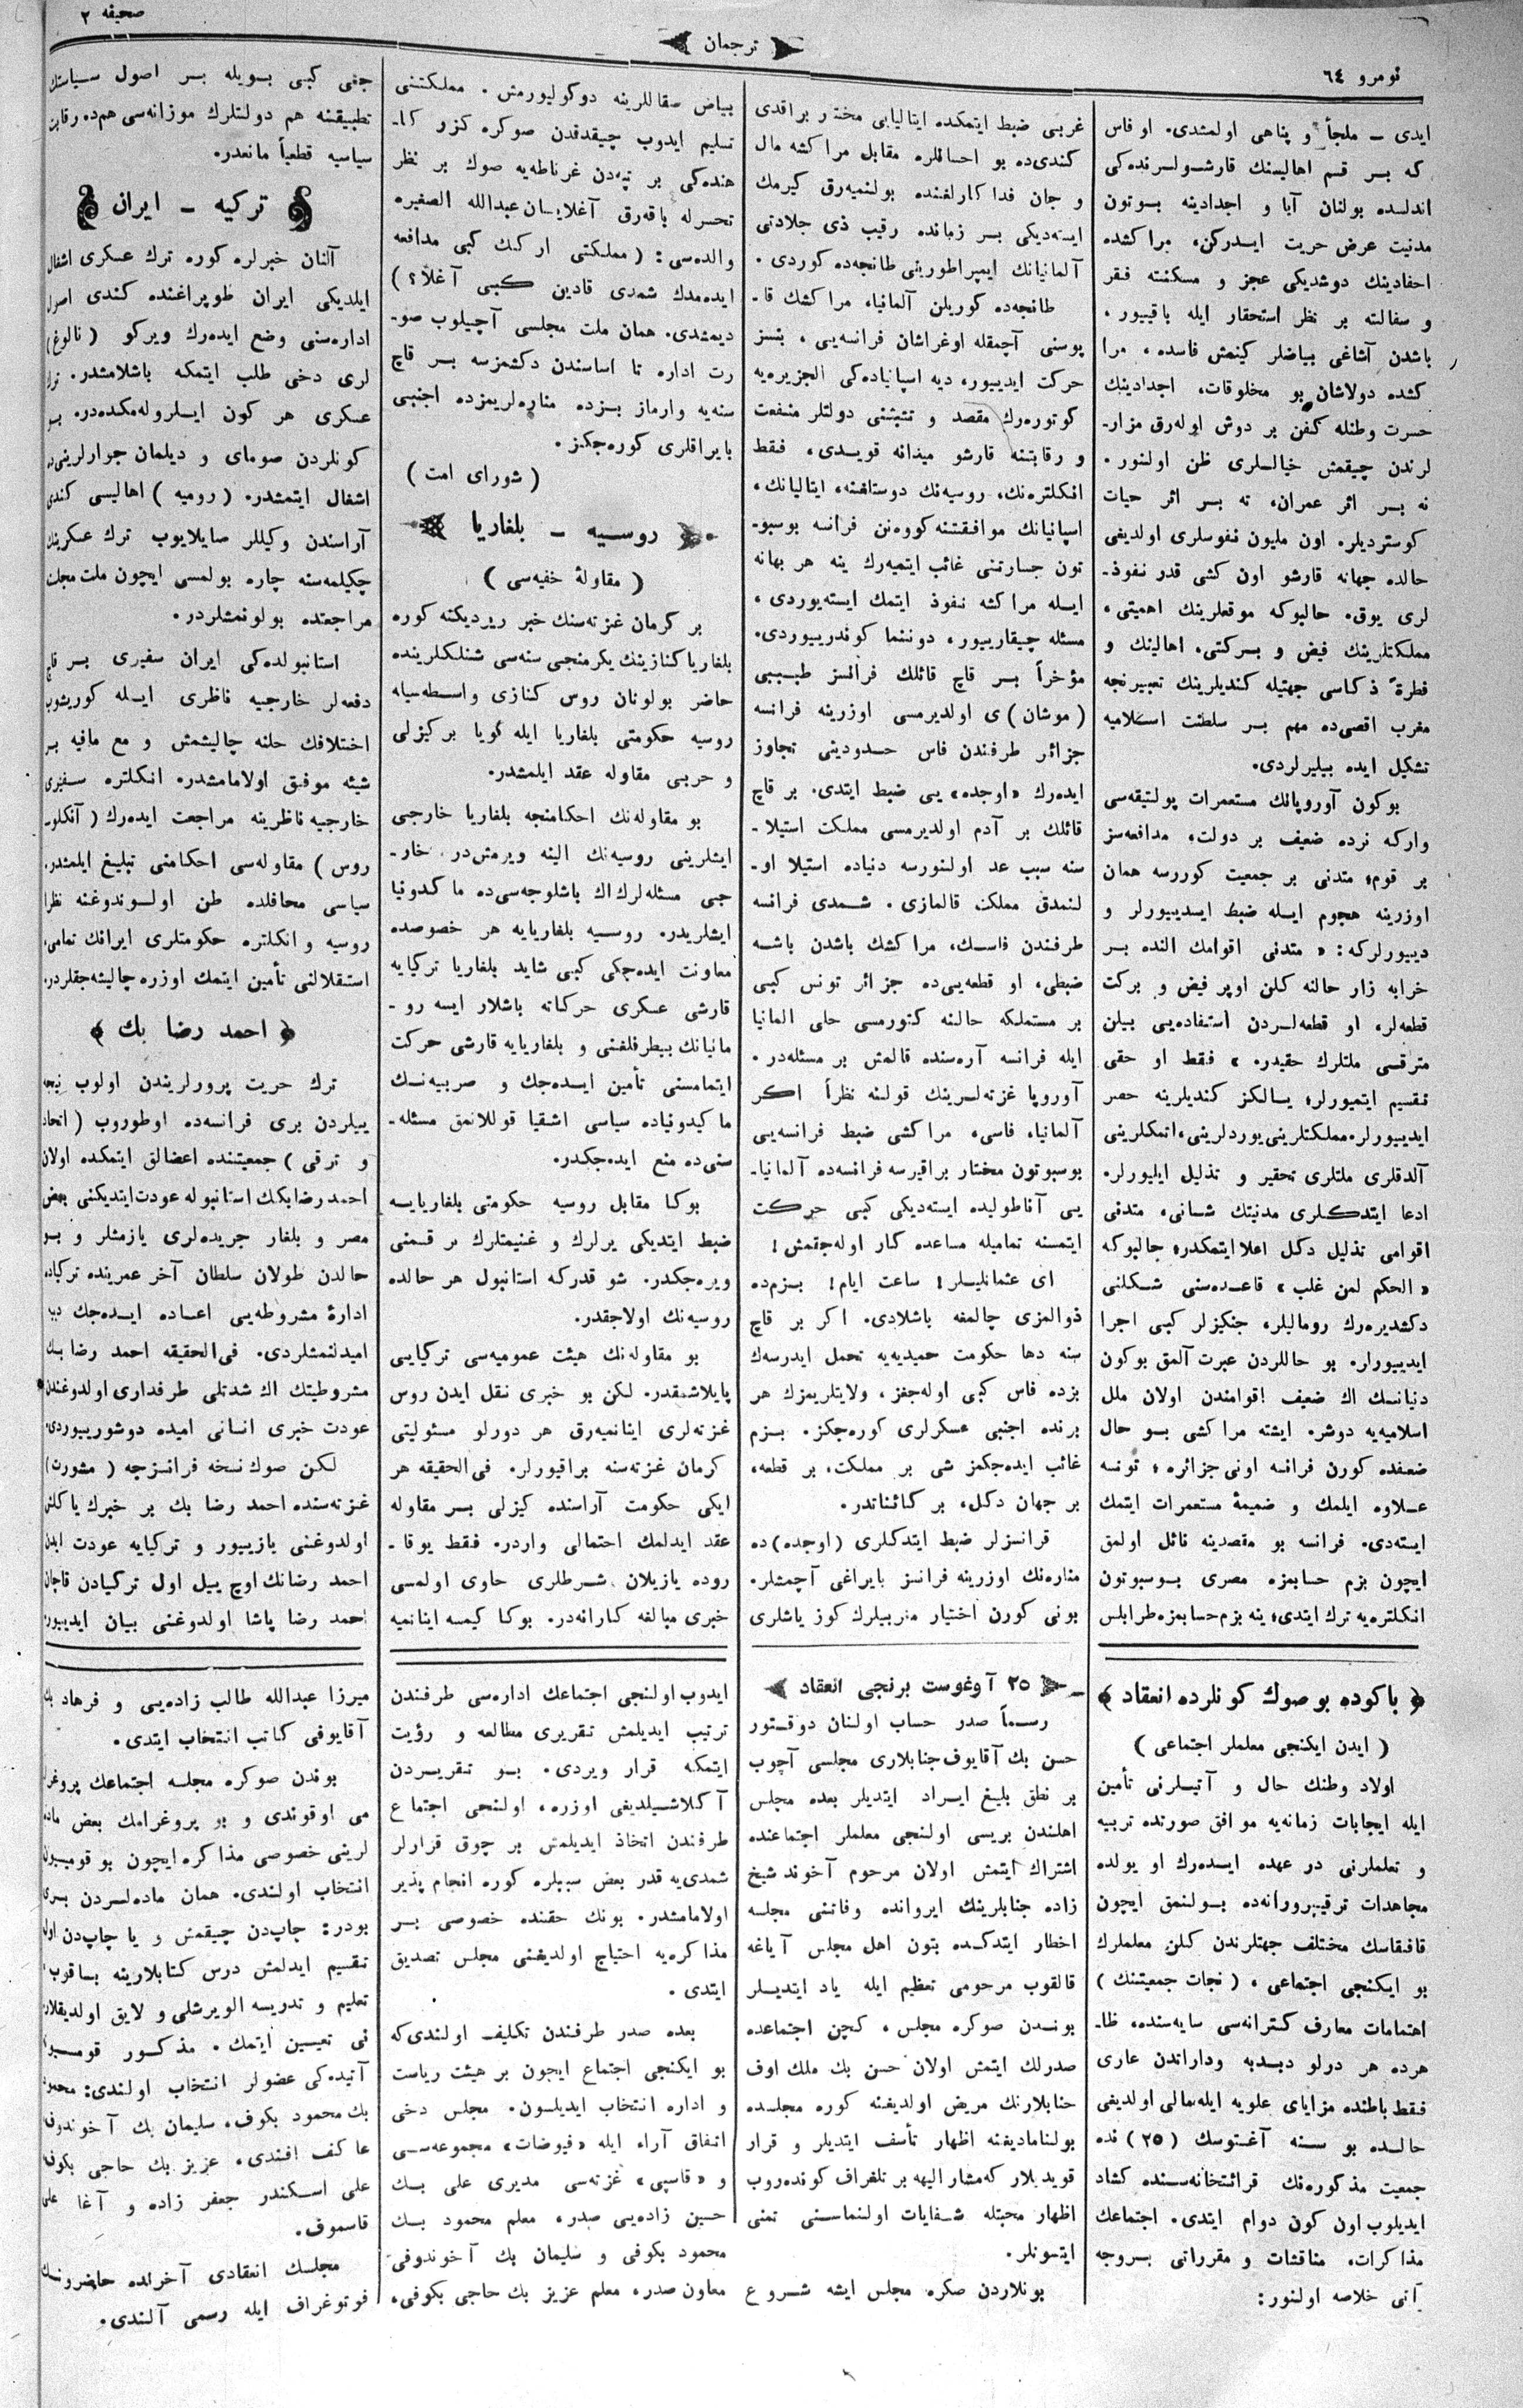 صحیفه ٢
ترجمان
نومرو ٦٤
ایدی ـ ملجأ و پناهی اولمشدی. او فاس
که بـر قسم اهالیسنك قارشـولـرنده‌کی
اندلسده بولنان آبا و اجدادینه بـوتون
مدنیت عرض حریت ایـدرکن، مراکشده
احفادینك دوشدیکی عجز و مسکنته فـقر
و سفالته بر نظر استحقار ایله باقییور،
باشدن آشاغی بیاضلر کینمش فاسده، مرا
کشده دولاشان بو مخلوقات، اجدادینك
حسرت وطنله کفن بر دوش اوله‌رق مزار-
لرندن چیقمش خیالـلری ظن اولنور.
نه بـر اثر عمران، نه بـر اثر حیات
کوستردیلر. اون ملیون نفوسلری اولدیغی
حالده جهانه قارشو اون کشی قدر نفوذ-
لری یوق. حالبوکه موقعلرینك اهمیتی،
مملکتلرینك فیض و بـرکتی، اهالینك و
فطرةً ذکاسی جهتیله کندیلرینك تعبیرنجه
مغرب اقصی‌ده مهم بـر سلطنت اسلامیه
تشکیل ایده بیلیرلردی.
بوکون آوروپانك مستعمرات پولتیقه‌سی
وارکه نرده ضعیف بر دولت، مدافعه‌سز
بر قوم، متدنی بر جمعیت کوررسه همان
اوزرینه هجوم ایـله ضبط ایـدییورلر و
دییورلرکه: « متدنی اقوامك النده بـر
خرابه زار حالنه کلن اوپر فیض و برکت
قطعه‌لر، او قطعه‌لـردن استفاده‌یی بیلن
مترقـی ملتلرك حقیدر. » فـقط او حقی
تقسیم ایتمیورلر، یـالکز کندیلرینه حصر
ایدییورلر. مملکتلرینی یوردلرینی، اتمکلرینی
آلدقلری ملتلری تحقیر و تذلیل ایلیورلر.
ادعا ایتدکـلری مدنیتك شـانی، متدنی
اقوامی تذلیل دکل اعلا ایتمکدر، حالبوکه
« الحکم لمن غلب » قاعـده‌سنی شـکلنی
دکشدیره‌رك رومالیلر، جنکیزلر کبی اجرا
ایدییورلر. بو حاللردن عبرت آلمق بوکون
دنیانـك اك ضعیف اقوامندن اولان ملل
اسلامیه‌یه دوشر. ایشته مراکشی بـو حال
ضعفده کورن فرانسه اونی جزائره، تونسه
عـلاوه ایلمك و ضمیمهٔ مستعمرات ایتمك
ایسته‌دی. فرانسه بو مقصدینه نائل اولمق
ایچون بزم حسابمزه مصری بـوسبوتون
انکلتره‌یه ترك ایتدی، ینه بزم حسابمزه طرابلس
غربـی ضبط ایتمکده ایتالیایی مختار براقدی
کندی‌ده بو احسانلره مقابل مراکشه مال
و جان فداکارلغنده بولنمیه‌رق کیرمك
ایسته‌دیکی بـر زمانده رقیب ذی جلادتی
آلمانیانك ایمپراطورینی طانجه‌ده کوردی.
طانجه‌ده کوریلن آلمانیا، مراکشك قا-
پوسنی آچمقله اوغراشان فرانسه‌یی، یتسز
حرکت ایدییور، دیه اسپانیاده‌کی الجزیره‌یه
کوتوره‌رك مقصد و تثبثنی دولتلر منفعت
و رقابتنه قارشو میدانه قویـدی، فـقط
انکلتره‌نك، روسیه‌نك دوستلغنه، ایتالیانك،
اسپانیانك موافقتنه کووه‌نن فرانسه بوسبو-
تون جسارتنی غائب ایتمیه‌رك ینه هر بهانه
ایـله مراکشه نـفوذ ایتمك ایسته‌یوردی،
مسئله چیقارییور، دوننما کوندرییوردی.
مؤخراً بـر قاچ قاتلك فرانسز طبـیبی
(موشان)ی اولدیرمسی اوزرینه فرانسه
جزائر طرفـندن فاس حـدودینی تجاوز
ایده‌رك «اوجده» یـی ضبط ایتدی. بر قاچ
قاتلك بر آدم اولدیرمسی مملکت استیلا-
سنه سبب عد اولنورسه دنیاده استیلا او-
لنمدق مملکت قالمازی. شـمدی فرانسه
طرفـندن فاسـك، مراکشك باشدن باشـه
ضبطی، او قطعه‌یی‌ده جزائر تونس کبـی
بر مستملکه حالنه کتورمسی حلی المانیا
ایله فرانسه آره‌سنده قالمش بر مسئله‌در.
آوروپا غزته‌لـرینك قولنه نظراً اکـر
آلمانیا، فاسی، مراکشی ضبط فرانسه‌یی
بوسبوتون مختار براقیرسه فرانسه‌ده آلمانیا-
یی آناطولیده ایسته‌دیکی کبی حرکت
ایتمسنه تمامیله مساعده کار اوله‌جقمش!
ای عثمانلیـلر! ساعت ایام! بـزم‌ده
ذوالمزی چالمغه باشلادی. اکر بر قاچ
سنه دها حکومت حمیدیه‌یه تحمل ایدرسه‌ك
بزده فاس کبی اوله‌جغز، ولایتلریمزك هر
برنده اجنبی عسکرلری کوره‌جکز. بـزم
غائب ایده‌جکمز شی بر مملکت، بر قطعه،
بر جهان دکل، بر کائناتدر.
فرانسزلر ضبط ایتدکلری (اوجده) ده
مناره‌نك اوزرینه فرانسز بایراغی آچمشلر.
بونی کورن اختیار مغربیلرك کوز یاشلری
بیاض صقاللرینه دوکولیورمش. مملکتنی
تسلیم ایدوب چیقدقدن صوکره کزر کا-
هنده‌کی بر تپه‌دن غرناطه‌یه صوك بر نظر
تحسرله باقه‌رق آغلایـان عبدالله الصغیره
والده‌سی: ( مملکتی ارکك کبی مدافعه
ایده‌مدك شمدی قادین کـبی آغلا؟)
دیمشدی. همان ملت مجلسی آچیلوب صو-
رت اداره تا اساسندن دکشمزسه بـر قاچ
سنه‌یه وارماز بـزده مناره‌لریمزده اجنبی
بایراقلری کوره‌جکز.
( شورای امت )
روسـیه ـ بلغاریا
( مقاولهٔ خفیه‌سی )
بر کرمان غزته‌سنك خبر ویردیکنه کوره
بلغاریا کنازینك یکرمنجی سنه‌سی شنلکلرینده
حاضر بولونان روس کنازی واسـطه‌سیله
روسیه حکومتی بلغاریا ایله کویا بر کیزلی
و حربی مقاوله عقد ایلمشدر.
بو مقاوله‌نك احکامنجه بلغاریا خارجی
ایشلرینی روسیه‌نك الینه ویرمش‌در. خار-
جی مسئله‌لرك اك باشلوجه‌سی‌ده ماکدونیا
ایشلریدر. روسـیه بلغاریایه هر خصوصده
معاونت ایده‌جکی کبی شاید بلغاریا ترکیایه
قارشی عسکری حرکاته باشلار ایسه رو-
مانیانك بیطرفلغنی و بلغاریایه قارشی حرکت
ایتمامسنی تأمین ایـده‌جك و صربیه‌نـك
ماکیدونیاده سیاسی اشقیا قوللانمق مسئله-
سنی‌ده منع ایده‌جکدر.
بوکا مقابل روسیه حکومتی بلغاریایـه
ضبط ایتدیکی یرلرك و غنیمتلرك بر قـسمنی
ویره‌جکدر. شو قدرکه استانبول هر حالده
روسیه‌نك اولاجقدر.
بو مقاوله‌نك هیئت عمومیه‌سی ترکیایی
پایلاشمقدر. لکن بو خبری نقل ایدن روس
غزته‌لری اینانمیه‌رق هر دورلو مسئولیتی
کرمان غزته‌سنه براقیورلر. فی‌الحقیقه هر
ایکی حکومت آراسنده کیزلی بـر مقاوله
عقد ایدلمك احتمالی واردر. فـقط یوقا-
روده یازیلان شـرطلری حاوی اولمسی
خبری مبالغه کارانه‌در. بوکا کیمسه اینانمیه
جغی کبی بـویله بـر اصول سیاستك
تطبیقنه هم دولتلرك موازنه‌سی هم‌ده رقابت
سیاسیه قطعیاً مانعدر.
ترکیه ـ ایران
آلنان خبرلره کوره ترك عسکری اشغال
ایلدیکی ایران طوپراغنده کندی اصول
اداره‌سنی وضع ایده‌رك ویرکو ( نالوغ )
لری دخی طلب ایتمکه باشلامشدر.
عسکری هر کون ایـلروله‌مکده‌در. بـو
کونلردن صومای و دیلمان جوارلرینی‌ده
اشغال ایتمشدر. ( رومیه ) اهالیسی کندی
آراسندن وکیللر صایلایوب ترك عسکرینك
چکیلمه‌سنه چاره بولمسی ایچون ملت مجلسـ
مراجعتده بولونمشلردر.
استانبولده‌کی ایران سفیری بـر قاچ
دفعه‌لر خارجیه ناظری ایـله کوریشوب
اختلافك حلنه چالیشمش و مع مافیه بر
شیئه موفق اولامامشدر. انکلتره سـفیری
خارجیه ناظرینه مراجعت ایده‌رك ( آنکلو-
روس ) مقاوله‌سی احکامنی تبلیغ ایلمشدر.
سیاسی محافلده ظن اولـوندوغنه نظراً
روسیه و انکلتره حکومتلری ایرانك تمامی،
استقلالنی تأمین ایتمك اوزره چالیشه‌جقلردر.
﴿ احمد رضا بك ﴾
ترك حریت پرورلریندن اولوب نیجه
ییلردن بری فرانسه‌ده اوطوروب ( اتحاد
و ترقی ) جمعیتنده اعضالق ایتمکده اولان
احمد رضا بکك استانبوله عودت ایتدیکنی بعض
مصر و بلغار جریده‌لری یازمشلر و بـو
حالدن طولان سلطان آخر عمرینده ترکیاده
ادارهٔ مشروطه‌یی اعـاده ایـده‌جك دیـ
امیدلنمشلردی. فی‌الحقیقه احمد رضا بـك
مشروطیتك اك شدتلی طرفداری اولدوغندن
عودت خبری انسانی امیده دوشورییوردی.
لکن صوك نسخه فرانـزجه ( مشورت )
غزته‌سنده احمد رضا بك بر خبرك یاکلش
اولدوغنی یازییور و ترکیایه عودت ایدن
احمد رضانك اوچ ییل اول ترکیادن قاچان
احمد رضا پاشا اولدوغنی بیان ایدییور.
﴿ باکوده بو صوك کونلرده انعقاد ﴾
( ایدن ایکنجی معلملر اجتماعی )
اولاد وطنك حال و آتیـلرنی تأمین
ایله ایجابات زمانه‌یه موافق صورتده تربیه
و تعلملرنی در عهده ایـده‌رك او یولده
مجاهدات ترقیپرورانه‌ده بـولنمق ایچون
قافقاسك مختلف جهتلرندن کلن معلملرك
بو ایکنجی اجتماعی، ( نجات جمعیتنك )
اهتمامات معارف کسترانه‌سی سایه‌سنده، ظا-
هرده هر درلو دبـدبه وداراتدن عاری
فـقط باطنده مزایای علویه ایله مالی اولدیغی
حالـده بو سـنه آغـتوسك (٢٥) نده
جمعیت مذکوره‌نك قرائتخانه‌سـنده کشاد
ایدیلوب اون کون دوام ایتدی. اجتماعك
مذاکرات، مناقشات و مقرراتی بـروجه
آتی خلاصه اولنور:
٢٥ آوغوست برنجی انعقاد
رسـماً صدر حساب اولنان دوقـتور
حسن بك آقایوف جنابلاری مجلسی آچوب
بر نطق بلیغ ایـراد ایتدیلر بعده مجلس
اهلندن بریسی اولنجی معلملر اجتماعنده
اشتراك ایتمش اولان مرحوم آخوند شیخ
زاده جنابلرینك ایروانده وفاتنی مجلسه
اخطار ایتدکـده بتون اهل مجلس آیاغه
قالقوب مرحومی تعظیم ایله یاد ایتدیـلر
بونـدن صوکره مجلس، کچن اجتماعده
صدرلك ایتمش اولان حسن بك ملك اوف
جنابلارنك مریض اولدیغنه کوره مجلسـده
بولنامادیغنه اظهار تأسف ایتدیلر و قرار
قویدیلار که مشار الیهه بر تلغراف کونده‌روب
اظهار محبتله شـفایات اولنماسـنی تمنی
ایتسونلر.
بونلاردن صکره مجلس ایشه شـروع
ایدوب اولنجی اجتماعك اداره‌سی طرفـندن
ترتیب ایدیلمش تقریری مطالعه و رؤیت
ایتمکه قرار ویردی. بـو تـقریـردن
آکلاشـیلدیغی اوزره، اولنجی اجتماع
طرفـندن اتخاذ ایدیلمش بر چوق قرارلر
شمدی‌یه قدر بعض سببلره کوره انجام پذیر
اولامامشدر. بونك حقنده خصوصی بـر
مذاکره‌یه احتیاج اولدیغنی مجلس تصدیق
ایتدی.
بعده صدر طرفـندن تکلیف اولندی که
بو ایکنجی اجتماع ایچون بر هیئت ریاست
و اداره انتخاب ایدیلـون. مجلس دخی
اتفاق آراء ایله «فیوضات» مجموعه‌سـی
و «قاسپی» غزته‌سی مدیری علی بـك
حسین زاده‌یی صدر، معلم محمود بـك
محمود بکوفی و سلیمان بك آخوندوفی
معاون صدر، معلم عزیز بك حاجی بکوفی،
میرزا عبدالله طالب زاده‌یـی و فرهاد بك
آقایوفی کاتب انتخاب ایتدی.
بوندن صوکره مجلسه اجتماعك پروغرا
می اوقوندی و بو پروغرامك بعض ماده
لرینی خصوصی مذاکره ایچون بو قومیسیون
انتخاب اولندی. همان ماده‌لـردن بـری
بودر: چاپ‌دن چیقمش و یا چاپ‌دن اول
تـقسیم ایدلمش درس کتابلارینه بـاقوب
تعلیم و تدریسه الویرشلی و لایق اولدیقلار
نی تعیـین ایتمك. مذکـور قومسیو
آتیده‌کی عضولر انتخاب اولندی: محمود
بك محمود بکوف، سلیمان بك آخوندوف،
عاکف افندی، عزیز بك حاجی بکوف،
علی اسـکندر جعفر زاده و آغا علی
قاسموف.
مجلسك انعقادی آخرنده حاضرونـك
فوتوغراف ایله رسمی آلندی.